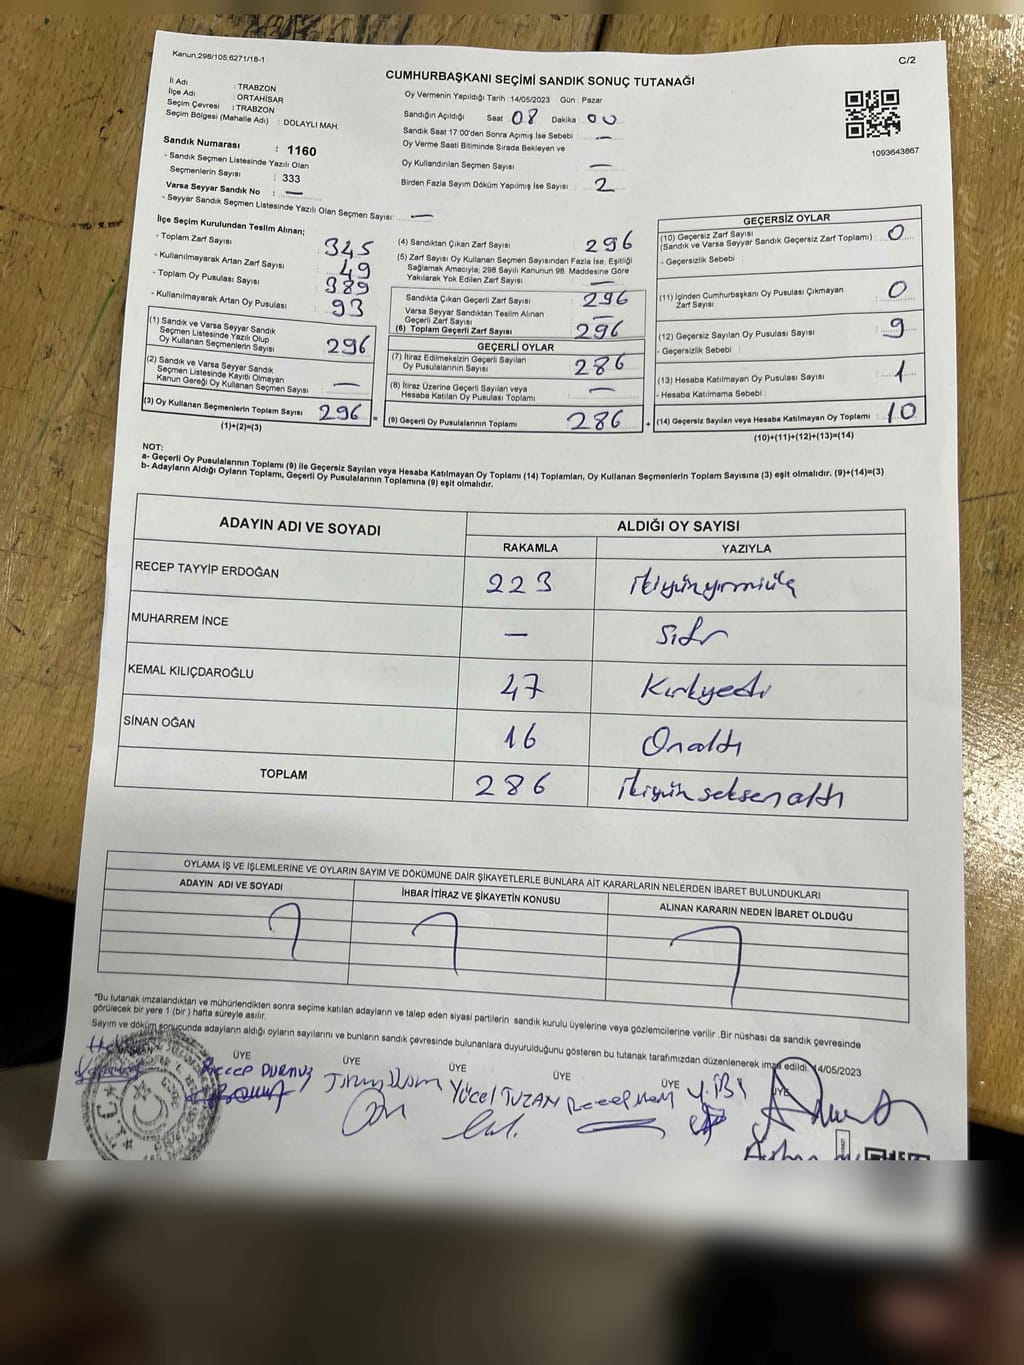 Kanun;298/105,6271/18-1
C/2
CUMHURBAŞKANI SEÇİMİ SANDIK SONUÇ TUTANAĞI
İl Adı : TRABZON
İlçe Adı : ORTAHİSAR
Seçim Çevresi : TRABZON
Seçim Bölgesi (Mahalle Adı) : DOLAYLI MAH.
Sandık Numarası : 1160
- Sandık Seçmen Listesinde Yazılı Olan
Seçmenlerin Sayısı : 333
Varsa Seyyar Sandık No : —
- Seyyar Sandık Seçmen Listesinde Yazılı Olan Seçmen Sayısı: —
Oy Vermenin Yapıldığı Tarih : 14/05/2023 Gün : Pazar
Sandığın Açıldığı Saat 08 Dakika 00
Sandık Saat 17:00'den Sonra Açılmış İse Sebebi : —
Oy Verme Saati Bitiminde Sırada Bekleyen ve
Oy Kullandırılan Seçmen Sayısı —
Birden Fazla Sayım Döküm Yapılmış İse Sayısı : 2
1093643867
İlçe Seçim Kurulundan Teslim Alınan;
- Toplam Zarf Sayısı : 345
- Kullanılmayarak Artan Zarf Sayısı : 49
- Toplam Oy Pusulası Sayısı : 389
- Kullanılmayarak Artan Oy Pusulası : 93
(1) Sandık ve Varsa Seyyar Sandık
Seçmen Listesinde Yazılı Olup
Oy Kullanan Seçmenlerin Sayısı : 296
(2) Sandık ve Varsa Seyyar Sandık
Seçmen Listesinde Kayıtlı Olmayan
Kanun Gereği Oy Kullanan Seçmen Sayısı : —
(3) Oy Kullanan Seçmenlerin Toplam Sayısı : 296
(1)+(2)=(3)
(4) Sandıktan Çıkan Zarf Sayısı : 296
(5) Zarf Sayısı Oy Kullanan Seçmen Sayısından Fazla İse, Eşitliği
Sağlamak Amacıyla; 298 Sayılı Kanunun 98. Maddesine Göre
Yakılarak Yok Edilen Zarf Sayısı : —
Sandıkta Çıkan Geçerli Zarf Sayısı : 296
Varsa Seyyar Sandıktan Teslim Alınan
Geçerli Zarf Sayısı : —
(6) Toplam Geçerli Zarf Sayısı : 296
GEÇERLİ OYLAR
(7) İtiraz Edilmeksizin Geçerli Sayılan
Oy Pusulalarının Sayısı : 286
(8) İtiraz Üzerine Geçerli Sayılan veya
Hesaba Katılan Oy Pusulası Toplamı : —
(9) Geçerli Oy Pusulalarının Toplamı : 286
GEÇERSİZ OYLAR
(10) Geçersiz Zarf Sayısı
(Sandık ve Varsa Seyyar Sandık Geçersiz Zarf Toplamı) : 0
- Geçersizlik Sebebi :
(11) İçinden Cumhurbaşkanı Oy Pusulası Çıkmayan
Zarf Sayısı : 0
(12) Geçersiz Sayılan Oy Pusulası Sayısı : 9
- Geçersizlik Sebebi :
(13) Hesaba Katılmayan Oy Pusulası Sayısı : 1
- Hesaba Katılmama Sebebi :
(14) Geçersiz Sayılan veya Hesaba Katılmayan Oy Toplamı : 10
(10)+(11)+(12)+(13)=(14)
NOT:
a- Geçerli Oy Pusulalarının Toplamı (9) ile Geçersiz Sayılan veya Hesaba Katılmayan Oy Toplamı (14) Toplamları, Oy Kullanan Seçmenlerin Toplam Sayısına (3) eşit olmalıdır. (9)+(14)=(3)
b- Adayların Aldığı Oyların Toplamı, Geçerli Oy Pusulalarının Toplamına (9) eşit olmalıdır.
ADAYIN ADI VE SOYADI ALDIĞI OY SAYISI
RAKAMLA YAZIYLA
RECEP TAYYİP ERDOĞAN 223 ikiyüzyirmiüç
MUHARREM İNCE — Sıfır
KEMAL KILIÇDAROĞLU 47 Kırkyedi
SİNAN OĞAN 16 Onaltı
TOPLAM 286 ikiyüz seksen altı
OYLAMA İŞ VE İŞLEMLERİNE VE OYLARIN SAYIM VE DÖKÜMÜNE DAİR ŞİKAYETLERLE BUNLARA AİT KARARLARIN NELERDEN İBARET BULUNDUKLARI
ADAYIN ADI VE SOYADI İHBAR İTİRAZ VE ŞİKAYETİN KONUSU ALINAN KARARIN NEDEN İBARET OLDUĞU
*Bu tutanak imzalandıktan ve mühürlendikten sonra seçime katılan adayların ve talep eden siyasi partilerin sandık kurulu üyelerine veya gözlemcilerine verilir .Bir nüshası da sandık çevresinde
görülecek bir yere 1 (bir ) hafta süreyle asılır.
Sayım ve döküm sonucunda adayların aldığı oyların sayılarını ve bunların sandık çevresinde bulunanlara duyurulduğunu gösteren bu tutanak tarafımızdan düzenlenerek imza edildi. 14/05/2023
ÜYE ÜYE ÜYE ÜYE ÜYE ÜYE
RECEP DURMUŞ Yücel TUZAN
T.C.